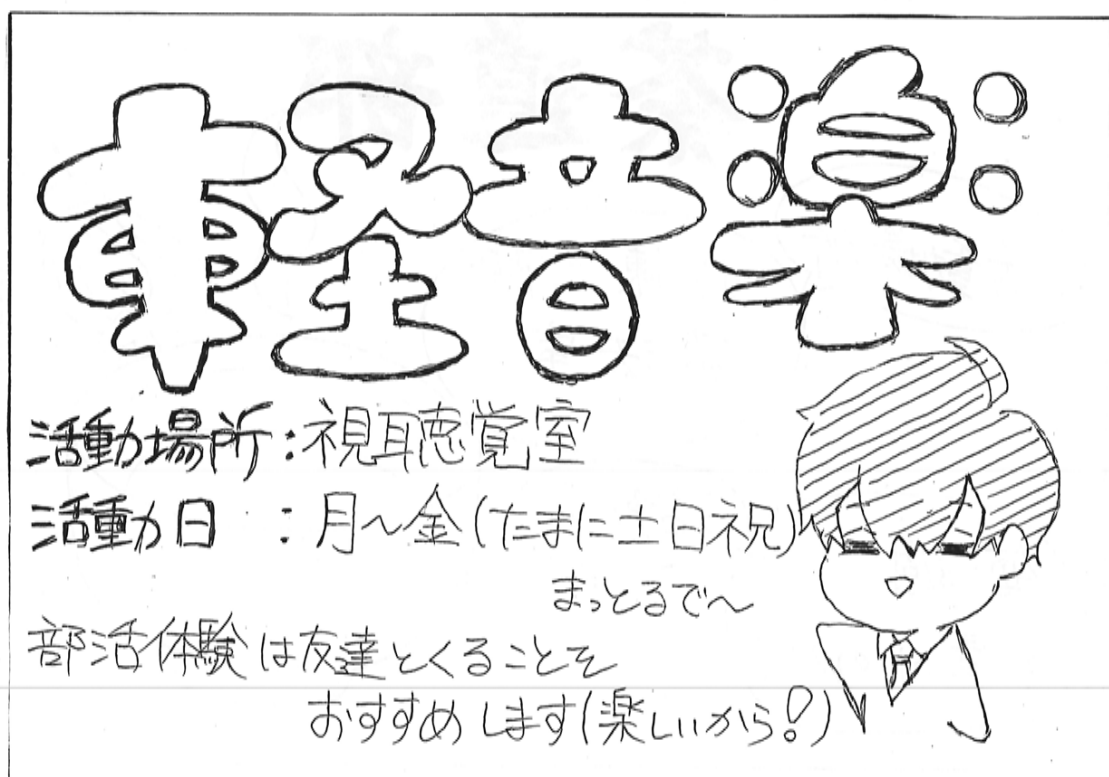 軽音楽
活動場所:視聴覚室
活動日 :月〜金(たまに土日祝)
まっとるで〜
部活体験は友達とくることを
おすすめします(楽しいから!)